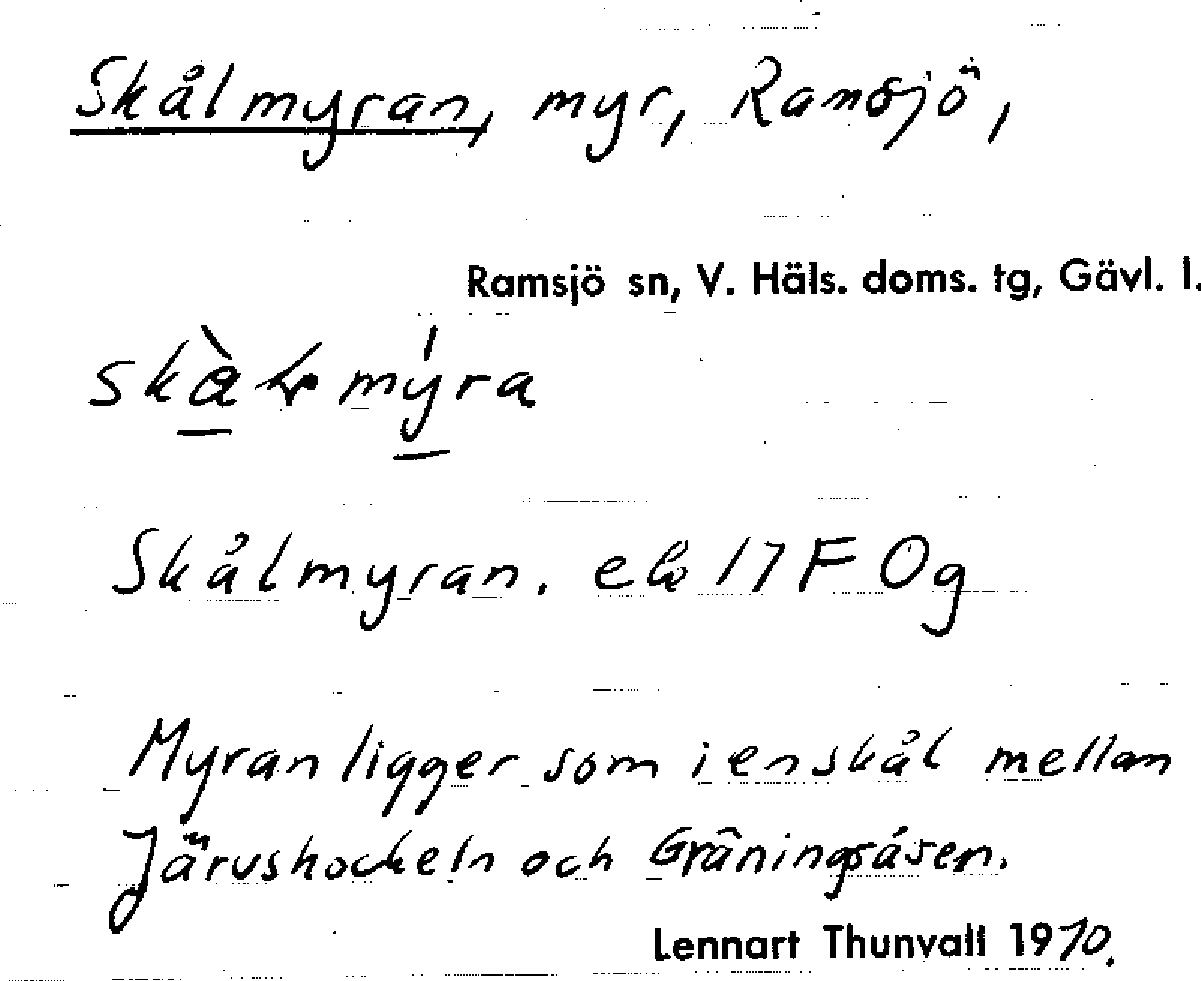 Skålmyran, myr, Ramsjö,
Ramsjö sn, V. Häls. doms. tg, Gävl. l.
myra
Skålmyran. ek 17 F Og
Myran ligger som i en skål mellan
Järvshockeln och Gräningsåsen.
Lennart Thunvall 1970.